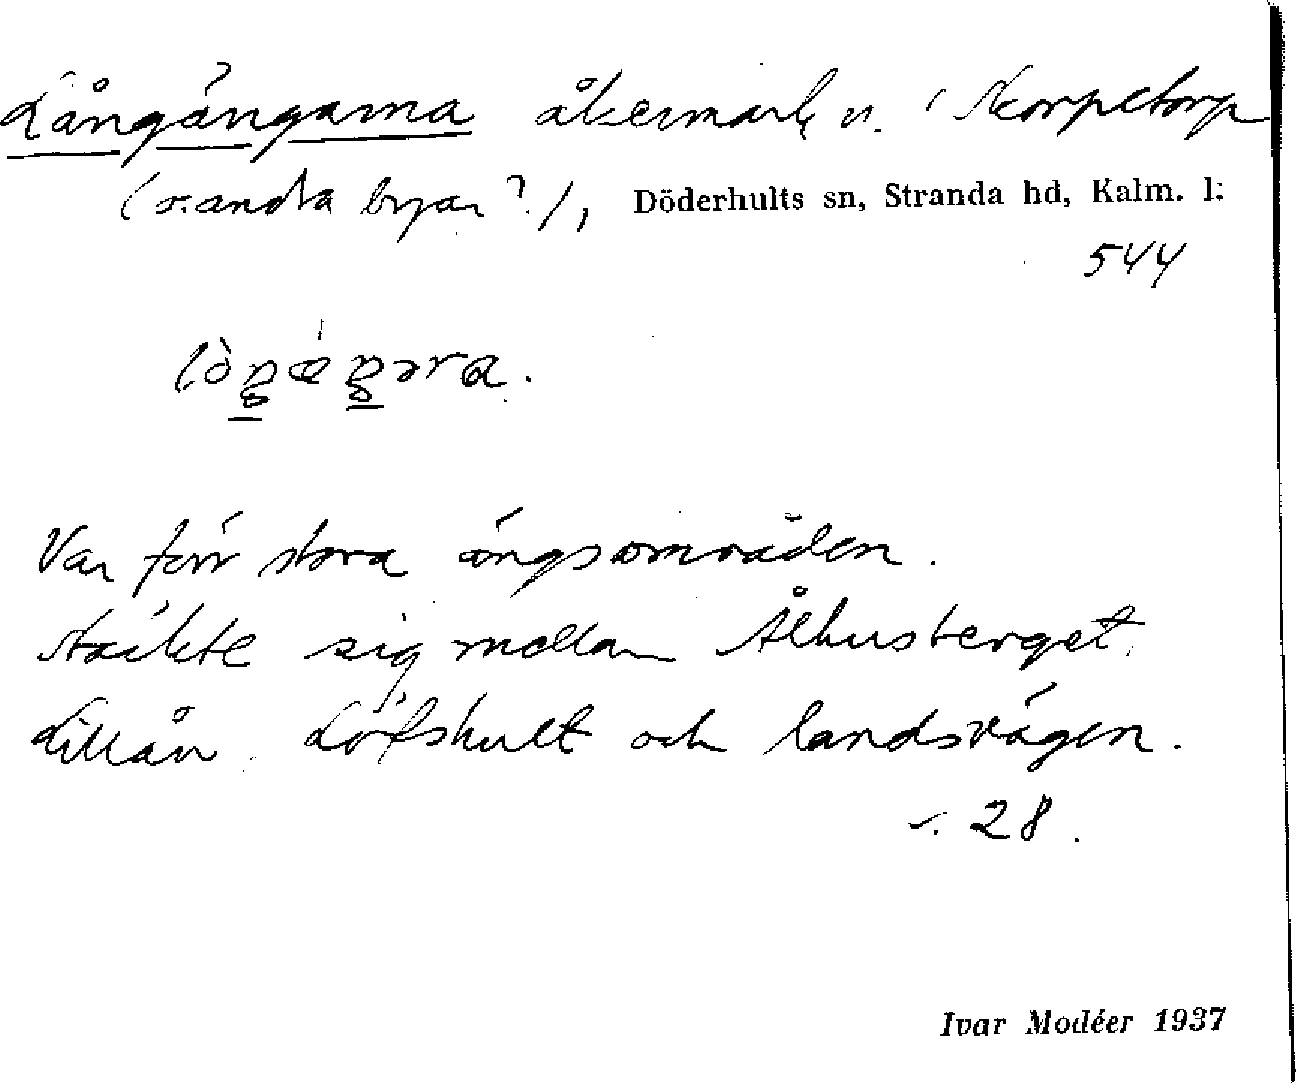 Långängarna åkermark n. i Skorpetorp
(o. andra byar?), Döderhults sn, Stranda hd, Kalm. l:
544
Var förr stora ängsområden.
sträckte sig mellan Ålhusberget,
Lillån, Löfshult och landsvägen.
28.
Ivar Modéer 1937